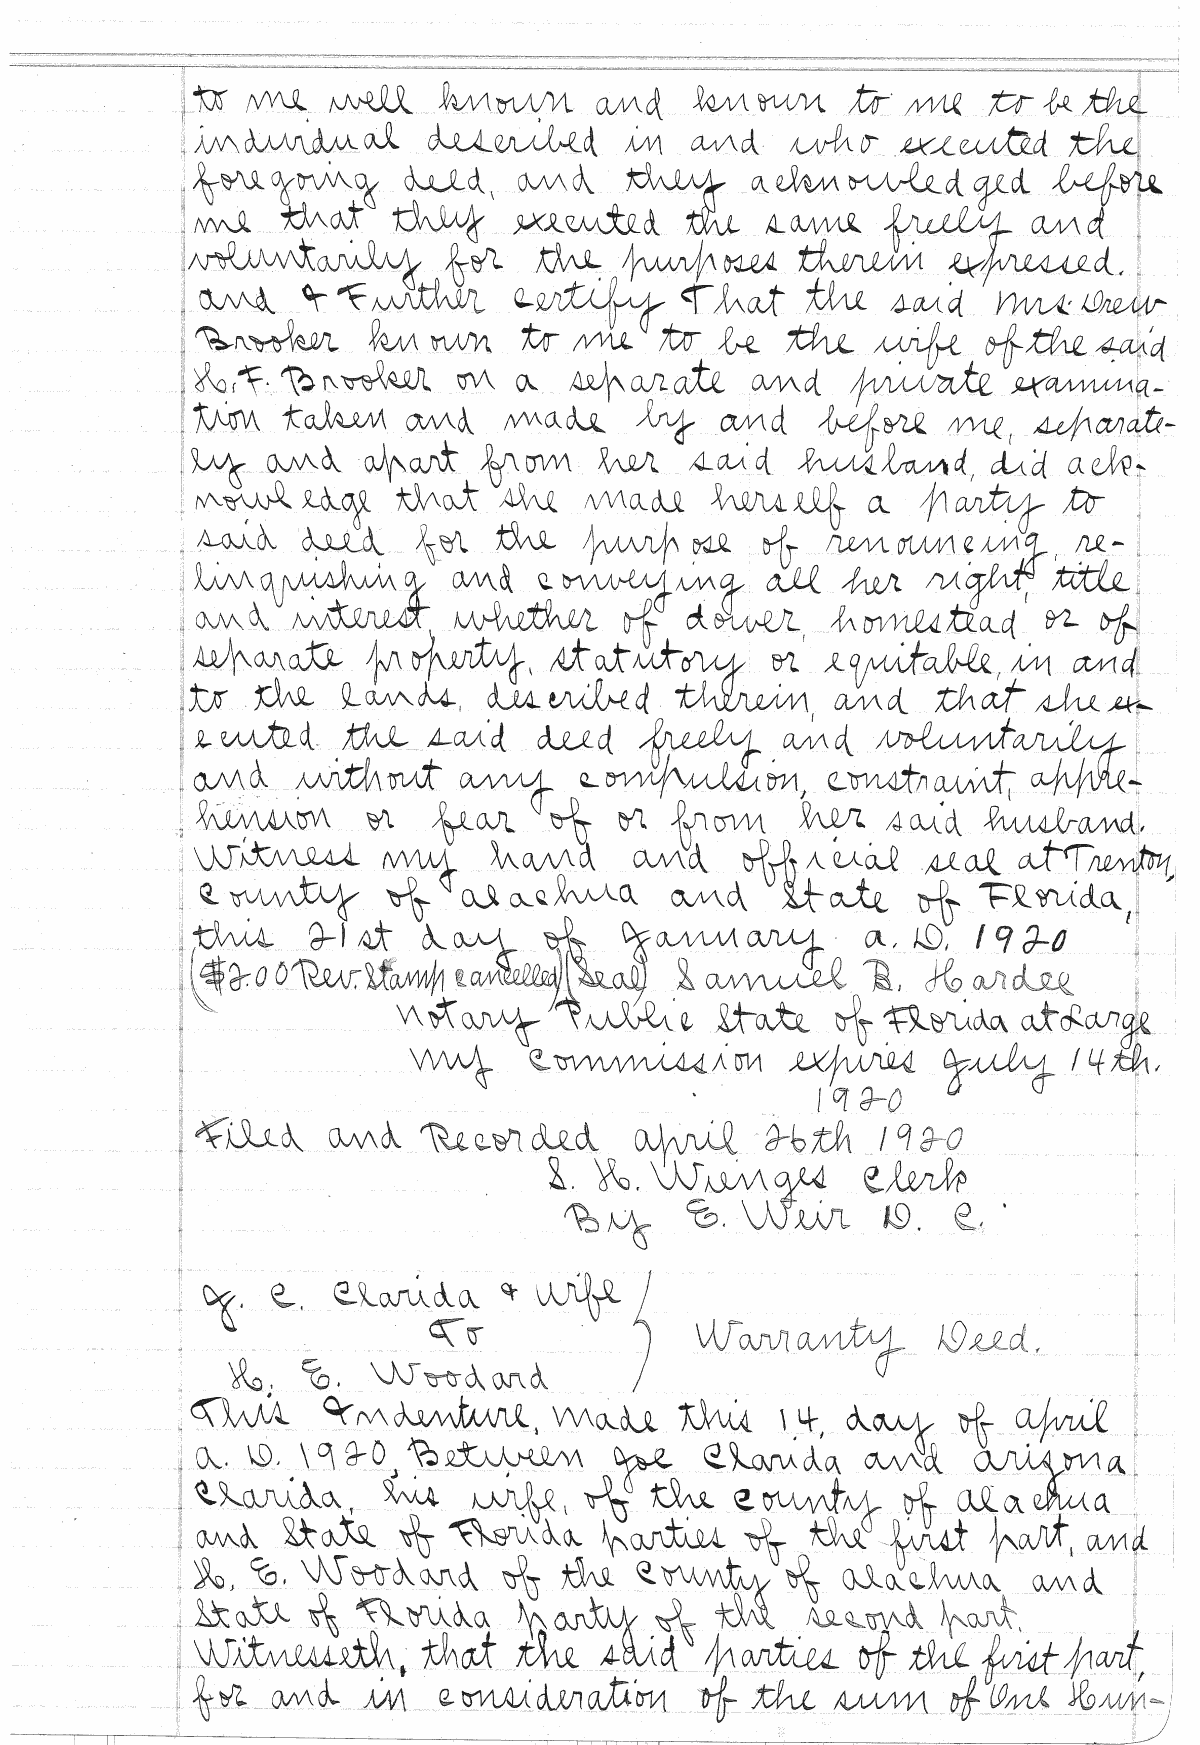 to me well known and known to me to be the
individual described in and who executed the
foregoing deed, and they acknowledged before
me that they executed the same freely and
voluntarily for the purposes therein expressed.
and I Further certify That the said Mrs. Drew
Brooker known to me to be the wife of the said
H. F. Brooker on a separate and private examina-
tion taken and made by and before me, separate-
ly and apart from her said husband, did ack-
nowledge that she made herself a party to
said deed for the purpose of renouncing, re-
linquishing and conveying all her right, title
and interest, whether of dower, homestead or of
separate property, statutory or equitable, in and
to the lands, described therein, and that she ex-
ecuted the said deed freely and voluntarily
and without any compulsion, constraint, appre-
hension or fear of or from her said husband.
Witness my hand and official seal at Trenton,
County of Alachua and State of Florida,
this 21st day of January A. D. 1920
($2.00 Rev. Stamp cancelled) (Seal) Samuel B. Hardee
Notary Public State of Florida at Large
My Commission expires July 14th.
1920
Filed and Recorded April 26th 1920
S. H. Wienges Clerk
By E. Weir D. C.
J. C. Clarida & Wife
To
Warranty Deed.
H. E. Woodard
This Indenture, Made this 14, day of April
A. D. 1920, Between Joe Clarida and Arizona
Clarida, his wife, of the County of Alachua
and State of Florida parties of the first part, and
H. E. Woodard of the County of Alachua and
State of Florida party of the second part.
Witnesseth, that the said parties of the first part,
for and in consideration of the sum of One Hun-